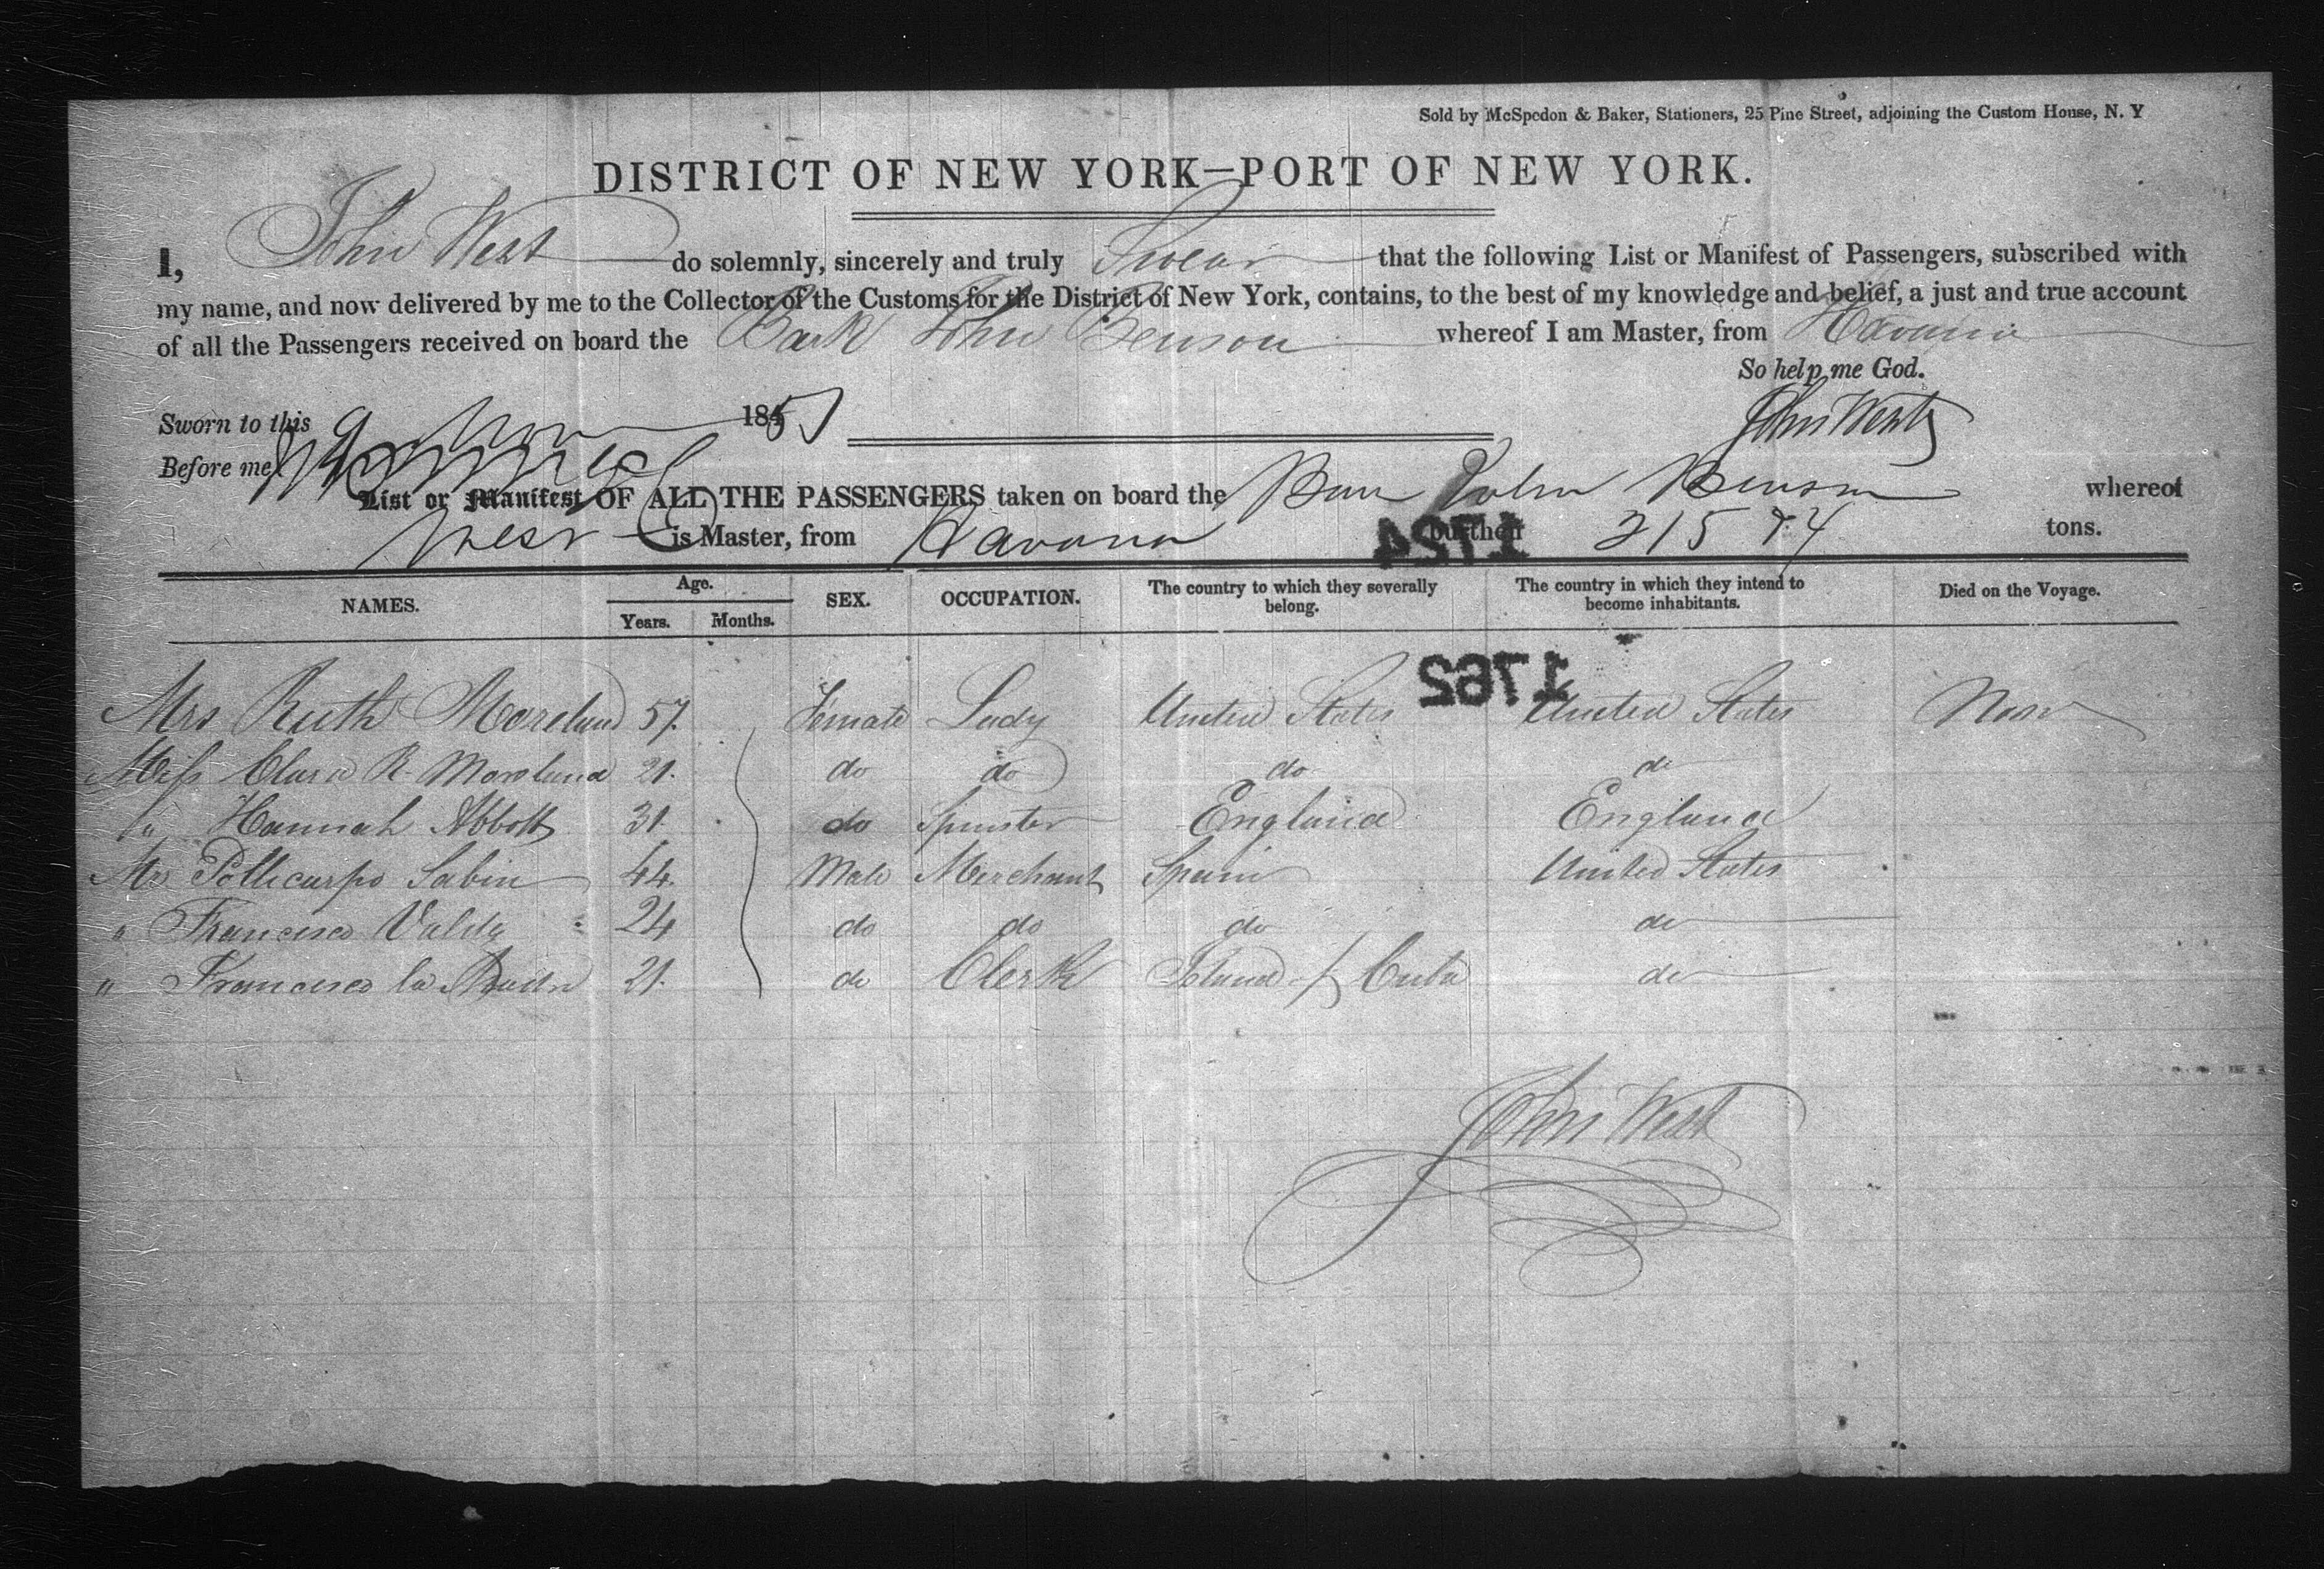 Sold by McSpedon & Baker, Stationers, 25 Pine Street, adjoining the Custom House, N. Y
DISTRICT OF NEW YORK—PORT OF NEW YORK.
I, John West do solemnly, sincerely and truly Swear that the following List or Manifest of Passengers, subscribed with
my name, and now delivered by me to the Collector of the Customs for the District of New York, contains, to the best of my knowledge and belief, a just and true account
of all the Passengers received on board the Bark John Benson whereof I am Master, from Havana
So help me God.
Sworn to this 9 1851 John West
Before me
List or Manifest OF ALL THE PASSENGERS taken on board the Barr John Benson whereof
West is Master, from Havana burthen 215 tons.
1724
NAMES. Age. Years. Months. SEX. OCCUPATION. The country to which they severally belong. The country in which they intend to become inhabitants. Died on the Voyage.
1762
Mrs Ruth Moreland 57. Female Lady United States United States None
Miss Clara R. Moreland 21. do do do do
" Hannah Abbott 31. do Spinster England England
Mr Pollicarpo Sabin 44. Male Merchant Spain United States
" Francisco Valdy 24 do do do do
" Francisco la 21. do Clerk Island of Cuba do
John West